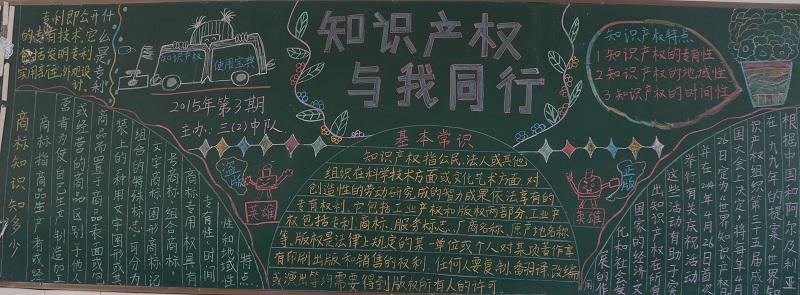 什么是专利
专利即公开
的专有技术,它
包括发明专利、
实用新型、外观设
计。
知识产权
使用宝典
2015年第3期
主办:三(2)中队
知识产权
与我同行
知识产权特点
1 知识产权的专有性
2 知识产权的地域性
3 知识产权的时间性
盗版
英雄
正版
英雄
基本常识
知识产权指公民、法人或其他
组织在科学技术方面或文化艺术方面,对
创造性的劳动研究成的智力成果依法享有的
专有权利。它包括工业产权和版权两部分,工业产
权包括专利、商标、服务标志、厂商名称、原产地名称
等,版权是法律上规定的某一单位或个人对某项著作享
有印刷出版和销售的权利,任何人要复制、翻译、改编
或演出等均需要得到版权所有人的许可。
商标知识知多少
商标指商品生产者或经
营者为使自己生产、制造、加工
或经营的商品区别于他人
商品而置于商品表面或包
装上的一种用文字图形或其
组合的特殊标志,可分为
文字商标、图形商标、记
号商标、组合商标。
商标专用权具有
专有性、时间
性和地域性
特点。
根据中国和阿尔及利亚
在一九九九年的提案,世界知
识产权组织第三十五届成员
国大会上决定,将每年4月
26日定为"世界知识产权日"
并在2001年4月26日首次
举行有关庆祝活动
这些活动有助于突
出知识产权在
国家的经济、文
化和社会发
展的作